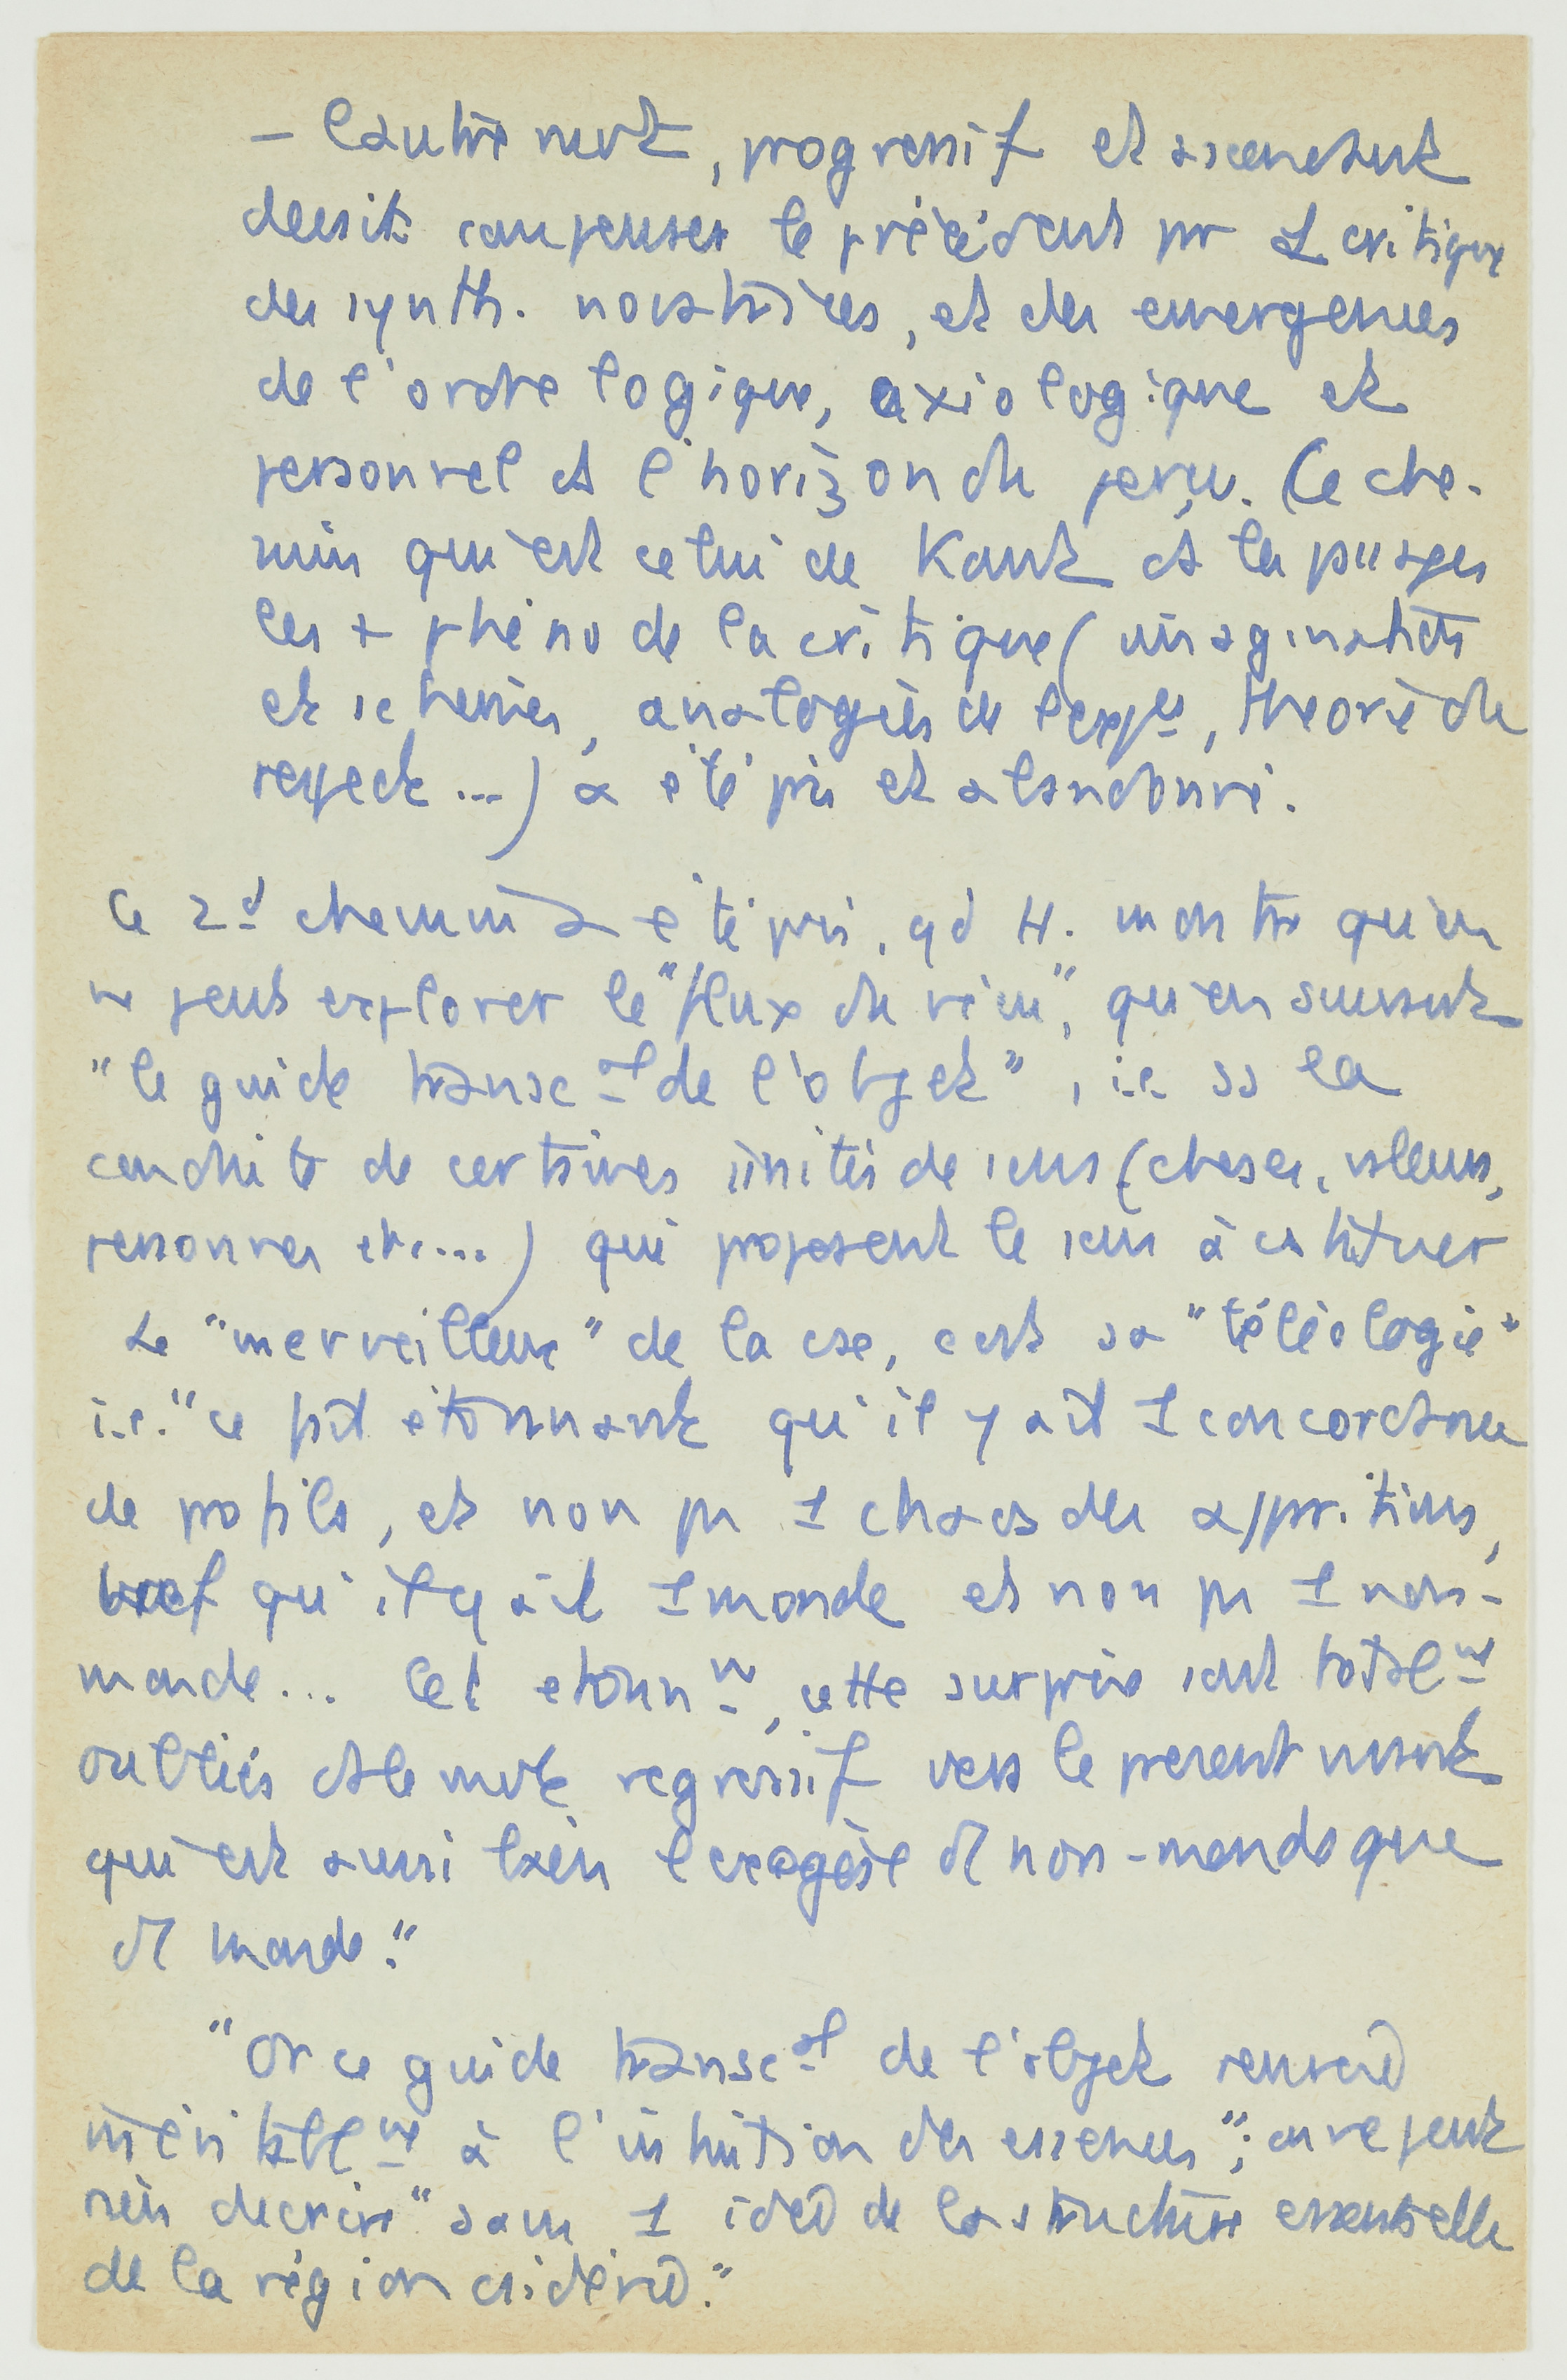 — L'autre mvt, progressif et ascendant
devait compenser le précédent par 1 critique
des synth. novatrices, et des émergences
de l'ordre logique, axiologique et
personnel ds l'horizon du perçu. (Ce che-
min qui est celui de Kant ds les passages
les + phéno de la critique (imagination
et schèmes, analogies de l'expce, théorie du
respect ...) a été pris et abandonné.
Ce 2d chemin a été pris, qd H. montre qu'on
ne peut explorer le "flux du vécu", qu'en suivant
"le guide transcal de l'objet", i.e. ss la
conduite de certaines unités de sens (choses, valeurs,
personnes etc....) qui proposent le sens à cstituer
Le "merveilleux" de la cse, c'est sa "téléologie"
i.e. "ce fait étonnant qu'il y ait 1 concordance
de profils, et non pas 1 chaos des apparitions,
bref qu'il y ait 1 monde et non pas 1 non-
monde... Cet étonnnt, cette surprise sont totalnt
oubliés ds le mvt régressif vers le présent vivant
qui est aussi bien l'exégèse d'1 non-monde que
d'1 monde."
"Or ce guide transcal de l'objet renvoie
inévitablnt à l'intuition des essences"; on ne peut
rien décrire "sans 1 idée de la structure essentielle
de la région csidérée."